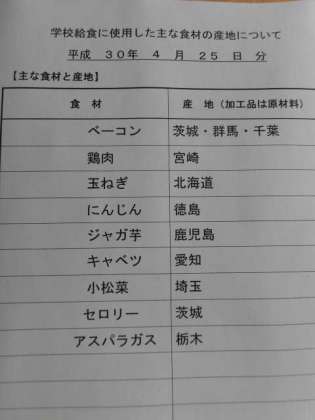 学校給食に使用した主な食材の産地について
平成 30年 4 月 25 日 分
【主な食材と産地】
食 材 産 地(加工品は原材料)
ベーコン 茨城・群馬・千葉
鶏肉 宮崎
玉ねぎ 北海道
にんじん 徳島
ジャガ芋 鹿児島
キャベツ 愛知
小松菜 埼玉
セロリー 茨城
アスパラガス 栃木